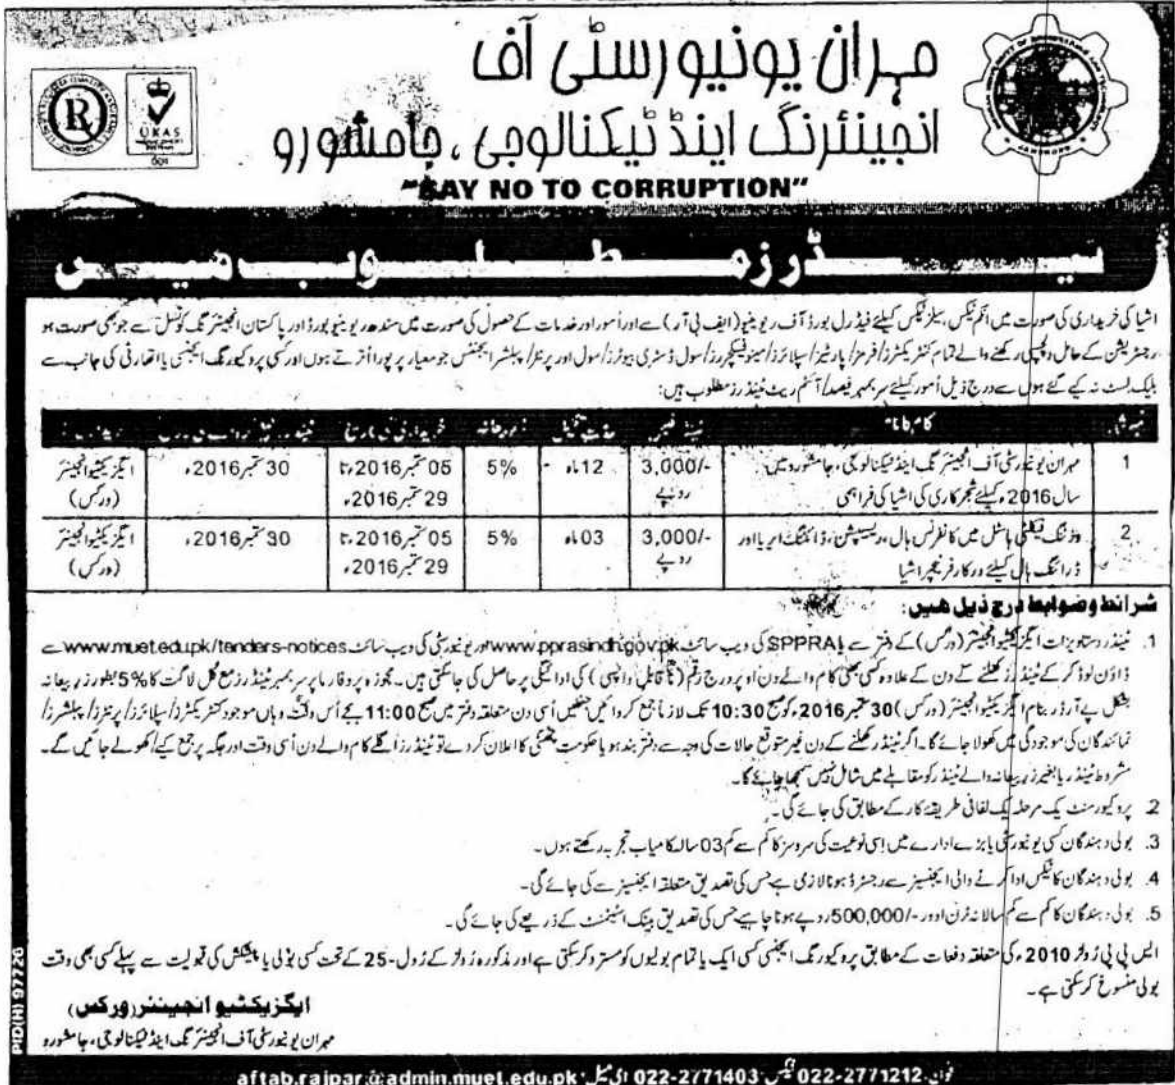 مہران یونیورسٹی آف
انجینئرنگ اینڈ ٹیکنالوجی، جامشورو
"SAY NO TO CORRUPTION"
UKAS
ٹینڈرز مطلوب ہیں
اشیا کی خریداری کی صورت میں انکم ٹیکس، سیلز ٹیکس کیلئے فیڈرل بورڈ آف ریونیو (ایف بی آر) سے اور اُمور اور خدمات کے حصول کی صورت میں سندھ ریونیو بورڈ اور پاکستان انجینئرنگ کونسل سے جو بھی صورت ہو
رجسٹریشن کے حامل دلچسپی رکھنے والے تمام کنٹریکٹرز/فرمز/پارٹیز/سپلائرز/مینوفیکچررز/سول ڈسٹری بیوٹرز/سول اور پرنٹرز/پبلشر ایجنٹس جو معیار پر پورا اُترتے ہوں اور کسی پروکیورنگ ایجنسی یا اتھارٹی کی جانب سے
بلیک لسٹ نہ کیے گئے ہوں سے درج ذیل اُمور کیلئے سربمہر فیصد/آئٹم ریٹ ٹینڈرز مطلوب ہیں:
کام کا نام ٹینڈر فیس مدت تکمیل زر بیعانہ خریداری کی تاریخ
1 مہران یونیورسٹی آف انجینئرنگ اینڈ ٹیکنالوجی، جامشورو میں 3,000/- 12 ماہ 5% 05 ستمبر 2016ء تا 30 ستمبر 2016ء ایگزیکٹیو انجینئر
سال 2016ء کیلئے شجرکاری کی اشیا کی فراہمی روپے 29 ستمبر 2016ء (ورکس)
2. وزٹنگ فیکلٹی ہاسٹل میں کانفرنس ہال، ریسیپشن، ڈائننگ ایریا اور 3,000/- 03 ماہ 5% 05 ستمبر 2016ء تا 30 ستمبر 2016ء ایگزیکٹیو انجینئر
ڈرائنگ ہال کیلئے درکار فرنیچر اشیا روپے 29 ستمبر 2016ء (ورکس)
شرائط و ضوابط درج ذیل ہیں:
1. ٹینڈر دستاویزات ایگزیکٹیو انجینئر (ورکس) کے دفتر سے SPPRA کی ویب سائٹ www.pprasindh.gov.pk اور یونیورسٹی کی ویب سائٹ www.muet.edu.pk/tenders-notices سے
ڈاؤن لوڈ کر کے ٹینڈرز کھلنے کے دن کے علاوہ کسی بھی کام والے دن اوپر درج رقم (ناقابل واپسی) کی ادائیگی پر حاصل کی جا سکتی ہیں۔ مجوزہ پروفارما پر سربمہر ٹینڈرز مع کل لاگت کا 5% بطور زر بیعانہ
بشکل پے آرڈر بنام ایگزیکٹیو انجینئر (ورکس) 30 ستمبر 2016ء کو صبح 10:30 تک لازماً جمع کروائیں جنھیں اُسی دن متعلقہ دفتر میں صبح 11:00 بجے اُس وقت وہاں موجود کنٹریکٹرز/سپلائرز/پرنٹرز/پبلشرز/
نمائندگان کی موجودگی میں کھولا جائے گا۔ اگر ٹینڈر کھلنے کے دن غیر متوقع حالات کی وجہ سے دفتر بند ہو یا حکومت چھٹی کا اعلان کر دے تو ٹینڈرز اگلے کام والے دن اُسی وقت اور جگہ پر جمع کیے/کھولے جائیں گے۔
مشروط ٹینڈر یا بغیر زر بیعانہ والے ٹینڈر کو مقابلے میں شامل نہیں سمجھا جائے گا۔
2. پروکیورمنٹ یک مرحلہ یک لفافی طریقۂ کار کے مطابق کی جائے گی۔
3. بولی دہندگان کسی یونیورسٹی یا بڑے ادارے میں اِسی نوعیت کی سروسز کا کم سے کم 03 سالہ کامیاب تجربہ رکھتے ہوں۔
4. بولی دہندگان کا ٹیکس ادا کرنے والی ایجنسیز سے رجسٹرڈ ہونا لازمی ہے جس کی تصدیق متعلقہ ایجنسیز سے کی جائے گی۔
5. بولی دہندگان کا کم سے کم سالانہ ٹرن اوور -/500,000 روپے ہونا چاہیے جس کی تصدیق بینک اسٹیٹمنٹ کے ذریعے کی جائے گی۔
ایس پی پی رُولز 2010ء کی متعلقہ دفعات کے مطابق پروکیورنگ ایجنسی کسی ایک یا تمام بولیوں کو مسترد کر سکتی ہے اور مذکورہ رُولز کے رُول-25 کے تحت کسی بولی یا پیشکش کی قبولیت سے پہلے کسی بھی وقت
بولی منسوخ کر سکتی ہے۔
ایگزیکٹیو انجینئر (ورکس)
مہران یونیورسٹی آف انجینئرنگ اینڈ ٹیکنالوجی، جامشورو
PID(H) 97726
فون: 022-2771212 فیکس: 022-2771403 ای میل: aftab.rajpar@admin.muet.edu.pk